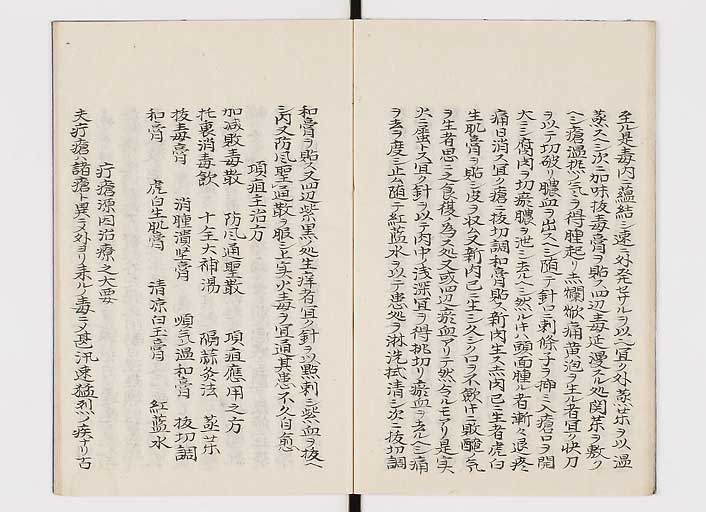 至ル是毒内ニ蘊結シ速ニ外発セサルヲ以ヘ宜ク外蒸散ヲ以温
蒸スヘシ次ニ加味抜毒膏ヲ貼ス四辺毒延漫スル処関薬ヲ敷ク
ヘシ瘡温热ノ気ヲ得腫起リ赤爛焮痛黄泡ヲ生ル者宜ク快刀
ヲ以テ切破リ膿血ヲ出スヘシ随テ針口ニ剌條子ヲ挿ミ入瘡口ヲ開
大ニシ腐肉ヲ切瘀膿ヲ泄シ去ルヘシ然ルキハ頭面腫ル者漸々退疼
痛日消ス宜ク瘡ニ抜切調和膏貼ス新肉生ス赤肉已ニ生者虎白
生肌膏ヲ貼シ皮ヲ収ム又新肉已ニ生シ久シク口ヲ不歛ハ
ヲ生者思フニ食復ノ為ス処又或四辺瘀血アリテ然ラルモアリ是実
火ニ属ス宜ク針ヲ以テ肉中ノ浅深宜ヲ得挑切リ瘀血ヲ去ルヘシ痛
ヲ去ヲ度ニ止ム随テ紅藍水ヲ以テ患処ヲ淋洗拭清シ次ニ抜切調
和膏ヲ貼ス又四辺紫黒ノ処生痒者宜ク針ヲ以點刺シ悪血ヲ抜ヘ
シ内又防風聖通散ヲ服シ上実火毒ヲ宜通其患不久自愈
項疽主治方
加減敗毒散 防风通聖散 項疽應用之方
托裏消毒飲 十全大補湯 隔蒜灸法 蒸薬
抜毒膏 消腫潰堅膏 順気温和膏 抜切調
和膏 虎白生肌膏 清凉白玉膏 紅藍水
疔瘡源因治療之大要
夫疔瘡ハ諸瘡ト異ニシテ外ヨリ来ル毒ニシテ甚汛速猛烈ノ疾ナリ古